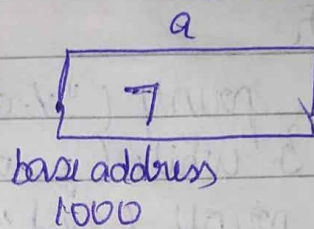 a
7
base address
1000